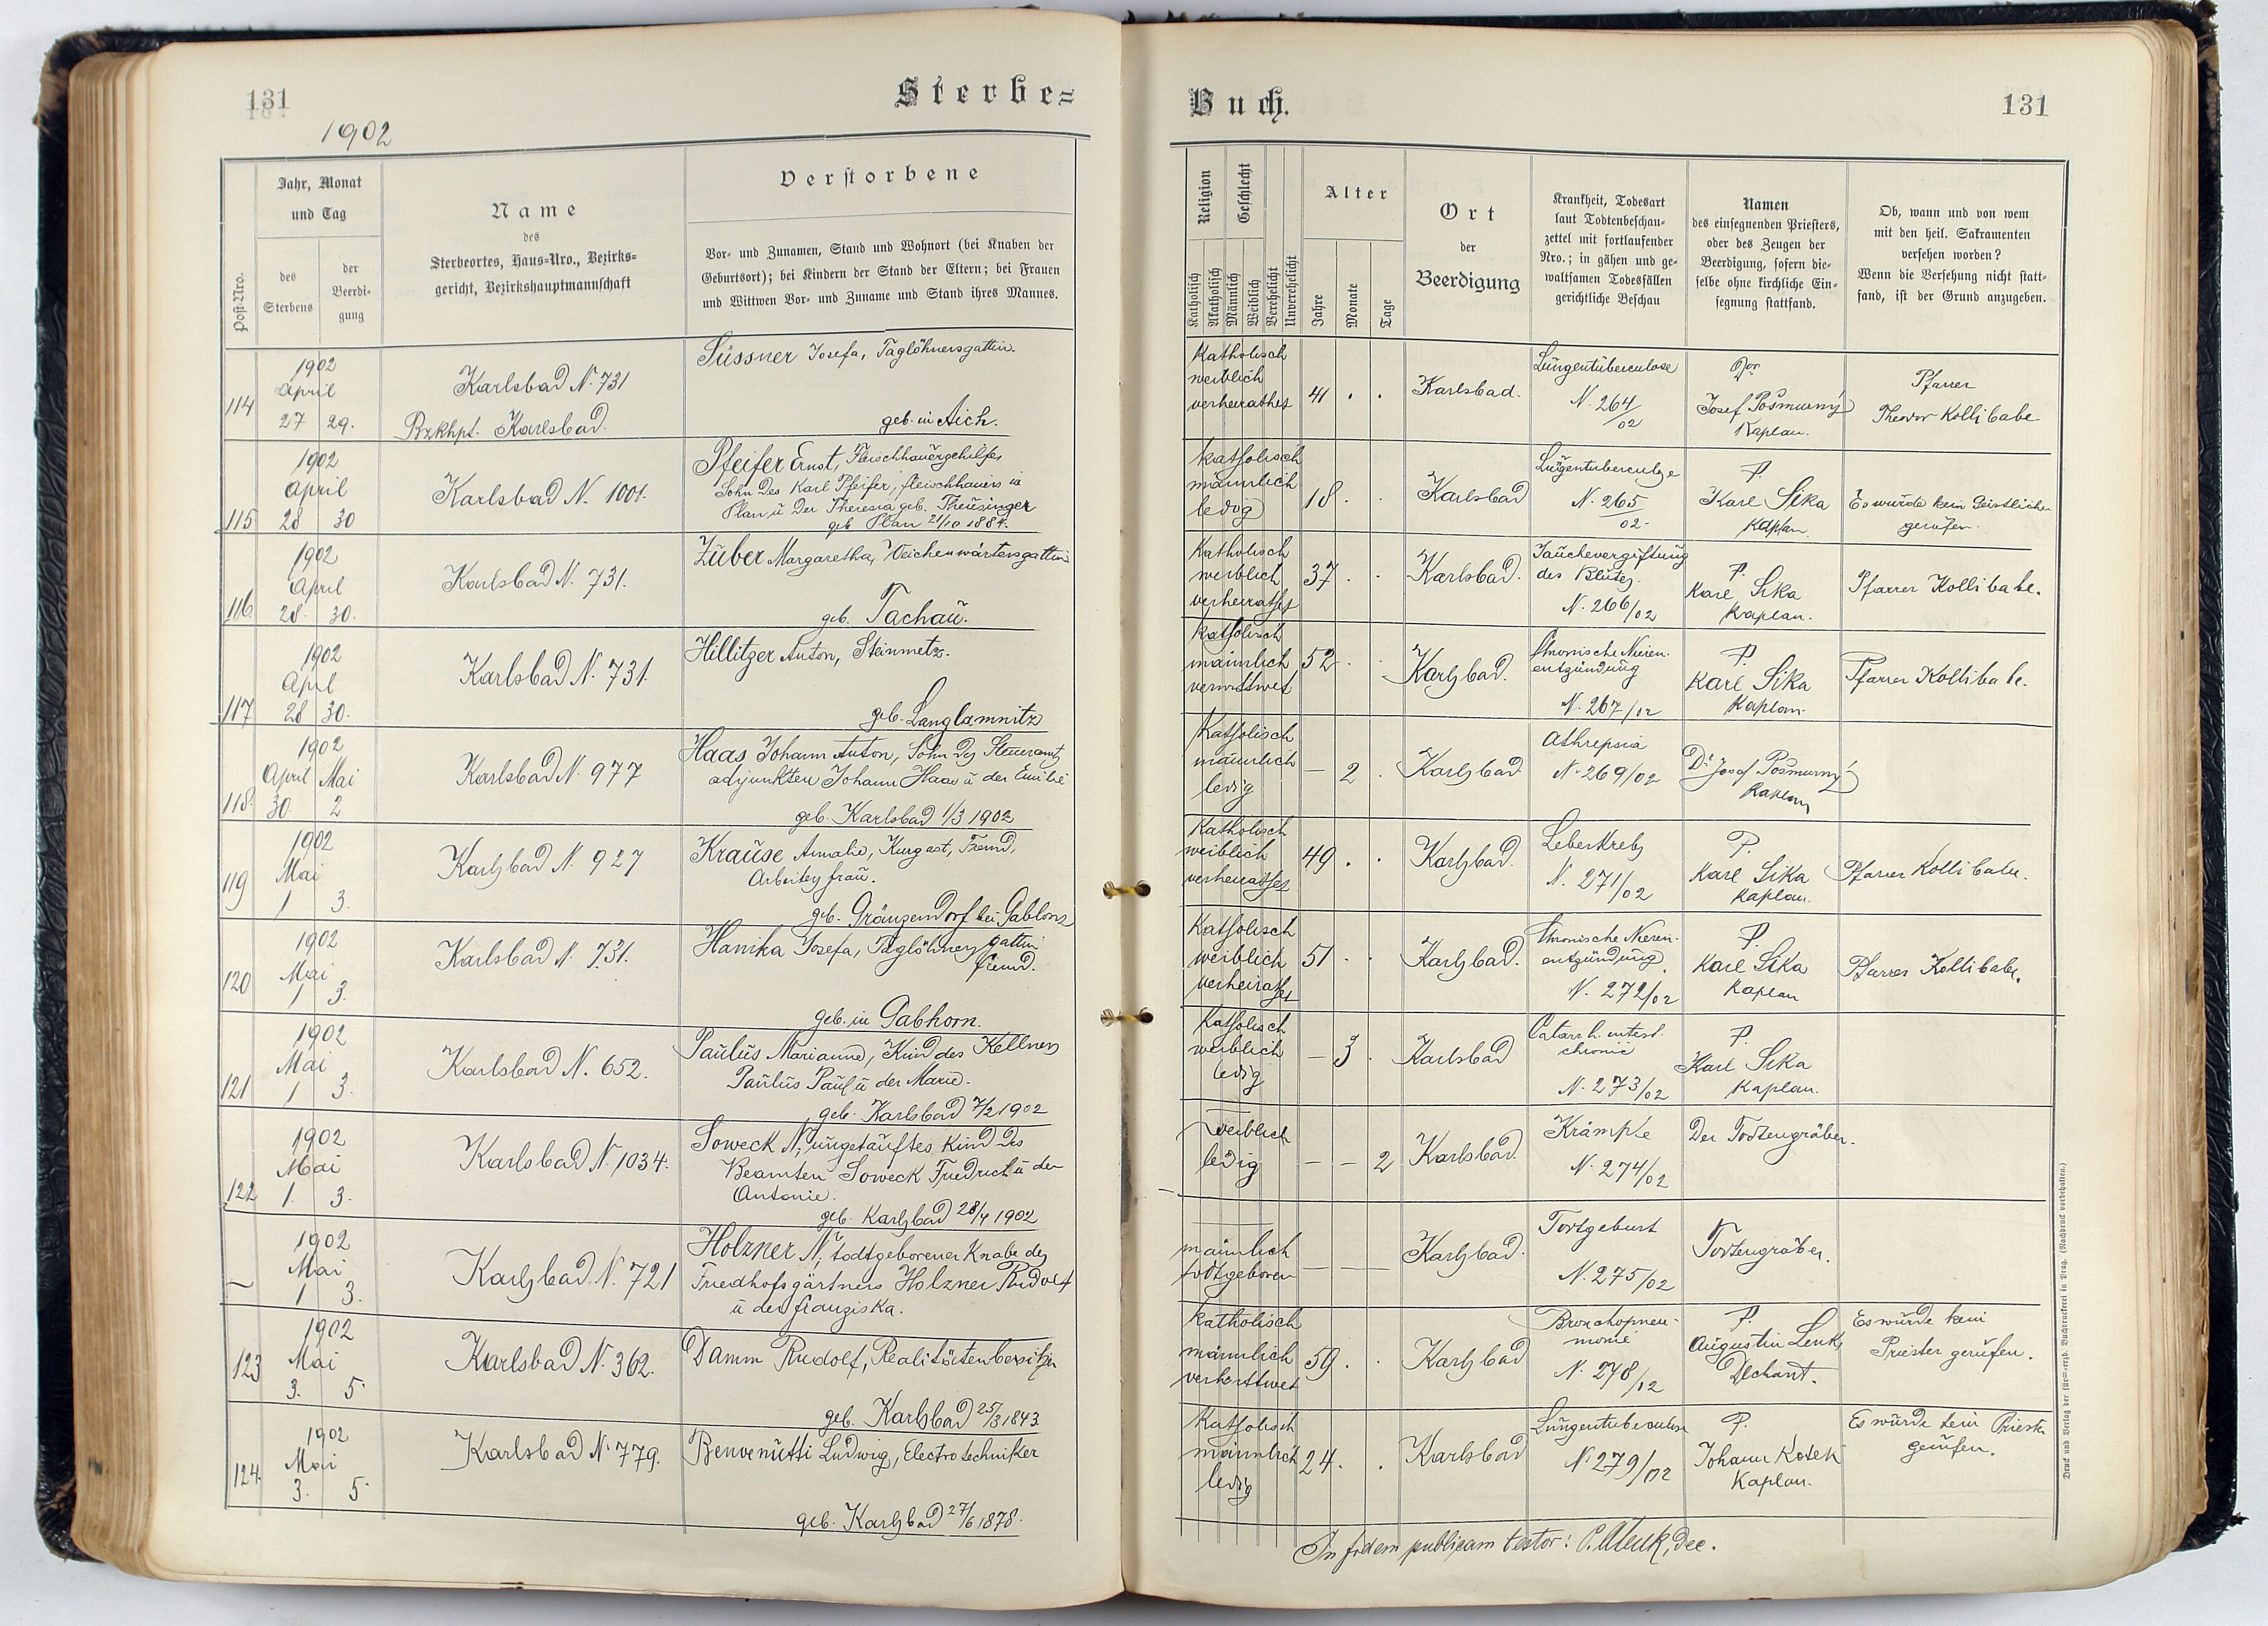 131
Sterbe=
1902
Post-Nro.
Jahr, Monat
und Tag
des
Sterbens
der
Beerdi-
gung
Name
des
Sterbeortes, Haus-Nro., Bezirks-
gericht, Bezirkshauptmannschaft
Verstorbene
Vor- und Zunamen, Stand und Wohnort (bei Knaben der
Geburtsort); bei Kindern der Stand der Eltern; bei Frauen
und Wittwen Vor- und Zuname und Stand ihres Mannes.
114
1902
April
27 29.
Karlsbad N. 731
Bzkhpt. Karlsbad.
Süssner Josefa, Taglöhnersgattin.
geb. in Aich.
115
1902
April
28 30
Karlsbad N. 1001.
Pfeifer Ernst, Fleischhauergehilfe,
Sohn des Karl Pfeifer, Fleischhauers in
Plan, u der Theresia geb. Theusinger
geb Plan 21/10 1884.
116
1902
April
28. 30.
Karlsbad N. 731.
Zuber Margaretha, Weichenwärtersgattin
geb. Tachau.
117
1902
April
28 30.
Karlsbad N. 731.
Hillitzer Anton, Steinmetz.
geb. Langlamnitz
118
1902
April Mai
30 2
Karlsbad N. 977
Haas Johann Anton, Sohn des Steueramts
adjunkten Johann Haas u der Emilie
geb. Karlsbad 1/3 1902
119
1902
Mai
1 3.
Karlsbad N. 927
Krause Amalie, Kurgast, Fremd,
Arbeitersfrau.
geb. Gränzendorf bei Gablonz
120
1902
Mai
1 3.
Karlsbad N. 731.
Hanika Josefa, Taglöhnersgattin
fremd.
geb. in Gabhorn.
121
1902
Mai
1 3.
Karlsbad N. 652.
Paulus Marianne, Kind des Kellners
Paulus Paul u der Marie.
geb. Karlsbad 7/2 1902
122
1902
Mai
1. 3.
Karlsbad N. 1034.
Soweck N, ungetauftes Kind des
Beamten Soweck Friedrich u der
Antonie.
geb. Karlsbad 28/4 1902
—
1902
Mai
1 3.
Karlsbad N. 721
Holzner N, todtgeborener Knabe des
Friedhofsgärtners Holzner Rudolf
u der Franziska.
123
1902
Mai
3. 5.
Karlsbad N. 362.
Damm Rudolf, Realitätenbesitzer
geb. Karlsbad 25/3 1843
124.
1902
Mai
3. 5.
Karlsbad N. 779.
Benvenutti Ludwig, Electrotechniker
geb. Karlsbad 27/6 1878.
Buch.
131
Religion
Geschlecht
Katholisch
Akatholisch
Männlich
Weiblich
Verehelicht
Unverehelicht
Alter
Jahre
Monate
Tage
Ort
der
Beerdigung
Krankheit, Todesart
laut Todtenbeschau-
zettel mit fortlaufender
Nro.; in gähen und ge-
waltsamen Todesfällen
gerichtliche Beschau
Namen
des einsegnenden Priesters,
oder des Zeugen der
Beerdigung, sofern die-
selbe ohne kirchliche Ein-
segnung stattfand.
Ob, wann und von wem
mit den heil. Sakramenten
versehen worden?
Wenn die Versehung nicht statt-
fand, ist der Grund anzugeben.
Katholisch
weiblich
verheirathet
41 . .
Karlsbad.
Lungentuberculose
N. 264/02
Josef Posmurný
Kaplan.
Pfarrer
Theodor Kollibabe
katholisch
männlich
ledig
18 . .
Karlsbad
Lungentuberculose
N. 265/02
P.
Karl Sika
Kaplan.
Es wurde kein Geistlicher
gerufen.
Katholisch
weiblich
verheirathet
37 . .
Karlsbad.
Jauchevergiftung
des Blutes.
N. 266/02
P.
Karl Sika
Kaplan.
Pfarrer Kollibabe.
katholisch
männlich
verwittwet
52 . .
Karlsbad.
Chronische Nieren-
entzündung
N. 267/02
P.
Karl Sika
Kaplan.
Pfarrer Kollibabe.
Katholisch
männlich
ledig
— 2 .
Karlsbad
Athrepsia
N. 269/02
Dr. Josef Posmurný
Kaplan
Katholisch
weiblich
verheirathet
49 . .
Karlsbad.
Leberkrebs
N. 271/02
P.
Karl Sika
Kaplan.
Pfarrer Kollibabe.
Katholisch
weiblich
verheirathet
51 . .
Karlsbad.
Chronische Nieren-
entzündung
N. 272/02
P.
Karl Sika
Kaplan
Pfarrer Kollibabe.
Katholisch
weiblich
ledig
— 3 .
Karlsbad
Catarrh. intest.
chronic
N. 273/02
P.
Karl Sika
Kaplan.
weiblich
ledig
— — 2
Karlsbad.
Krämpfe
N. 274/02
Der Todtengräber.
männlich
todtgeboren
— — —
Karlsbad.
Todtgeburt
N. 275/02
Todtengräber.
Katholisch
männlich
verwittwet
59 . .
Karlsbad
Bronchopneu-
monie
N. 278/02
P.
Augustin Lenk,
Dechant.
Es wurde kein
Priester gerufen.
Katholisch
männlich
ledig
24 . .
Karlsbad
Lungentuberculose
N. 279/02
P.
Johann Kotek
Kaplan.
Es wurde kein Priester
gerufen.
In fidem publicam testor: P. A Lenk, Dec.
Druck und Verlag der fürst-erzb. Buchdruckerei in Prag. (Nachdruck vorbehalten.)